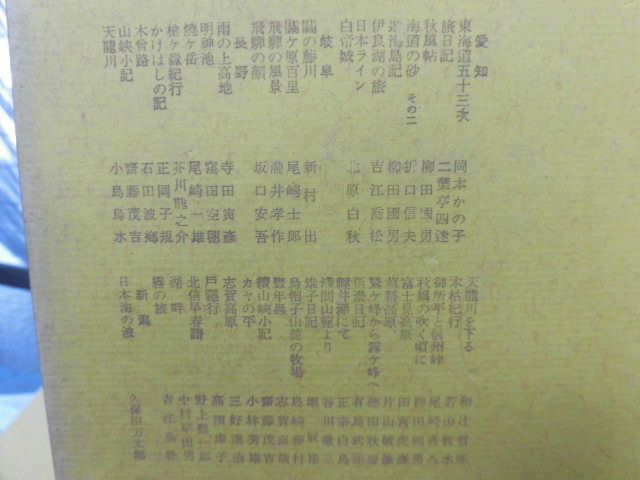 愛知
東海道五十三次 岡本かの子
旅日記 二葉亭四迷
秋風帖 柳田國男
海道の砂 その二 折口信夫
遊海島記 柳田國男
伊良湖の旅 吉江喬松
日本ライン 北原白秋
白帝城
岐阜
關の藤川 新村出
關ケ原百里 尾崎士郎
飛驒の風景 瀧井孝作
飛驒の顔 坂口安吾
長野
雨の上高地 寺田寅彦
明神池 窪田空穂
燒ケ岳 尾崎一雄
槍ケ嶽紀行 芥川龍之介
かけはしの記 正岡子規
木曾路 石田波郷
山峽小記 齋藤茂吉
天龍川 小島烏水
天龍川を下る 和辻哲郎
木枯紀行 若山牧水
御所平と信州峠 尾崎喜八
秋風の吹く頃に 柳田國男
富士見高原 田宮虎彦
蓼科高原 片山敏彦
鷲ケ峰から霧ケ峰へ 徳田秋聲
信濃日記 有島武郎
輕井澤にて 正宗白鳥
淺間山麓より 谷川徹三
雉子日記 堀辰雄
烏帽子山麓の牧場 島崎藤村
豐年蟲 志賀直哉
續山峽小記 齋藤茂吉
カヤの平 小林秀雄
志賀高原 三好達治
戸隱行 高濱虚子
北信早春譜 野上彌一郎
湖畔 中村草田男
霧の旅 吉江喬松
新潟
日本海の波 久保田万太郎